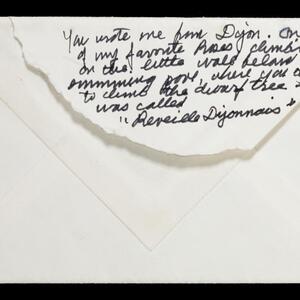 You wrote me from Dijon. On
of my favorite Roses climb
on the little wall below
swimming pool, where you
to climb the dwarf tree
was called
"Reveille Dijonnais"